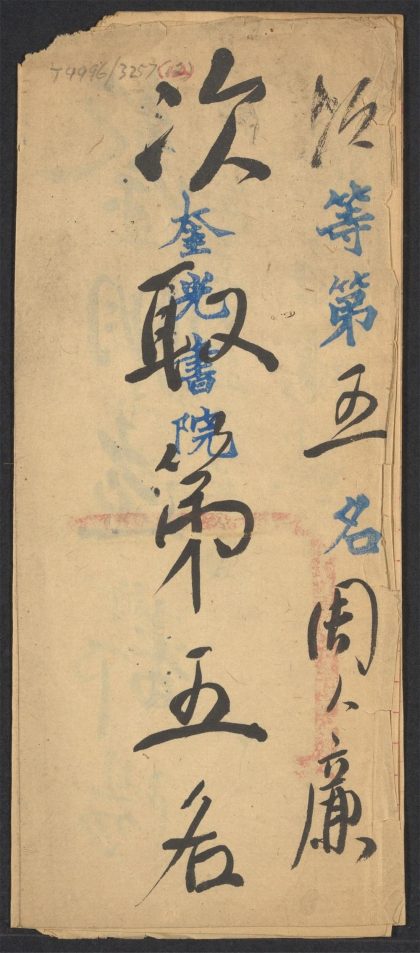 T9996/3257(12)
等第五名周人廉
次取第五名
奎光書院